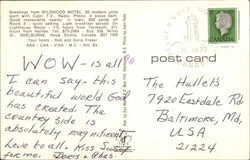 Greetings from WILDWOOD MOTEL 30 modern units
each with Color T.V., Radio, Phone, 4 piece bath.
Good restaurants nearby in town. 200 yards off
Route 3 - quiet setting. Light breakfast served.
from ferry. Tel. 875-2964 Box 358, Motel
St., SHELBURNE, Nova Scotia, Canada B0T 1W0
Your hosts - Bob and Doris Fraser
AAA - CAA - VISA - M.C. - Am. Ex.
WOW - is all
I can say - this
beautiful world God
has created. The
country side is
absolutely magnificent
Love to all. Kiss
for me. Doris & Chas
post card
The Hullets
7920 Eastdale Rd
Baltimore, Md,
USA
21224